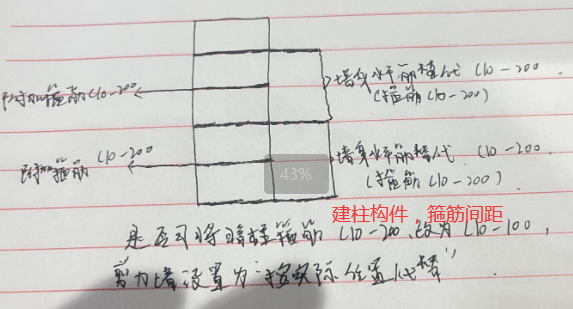 墙身水平筋替代 C10-200
(箍筋 C10-200)
附加箍筋 C10-200
附加箍筋 C10-200
墙身水平筋替代. C10-200.
(箍筋 C10-200)
43%
建柱构件，箍筋间距
是否可将暗柱箍筋 C10-200, 改为 C10-100,
剪力墙设置为“按实际位置代替”.